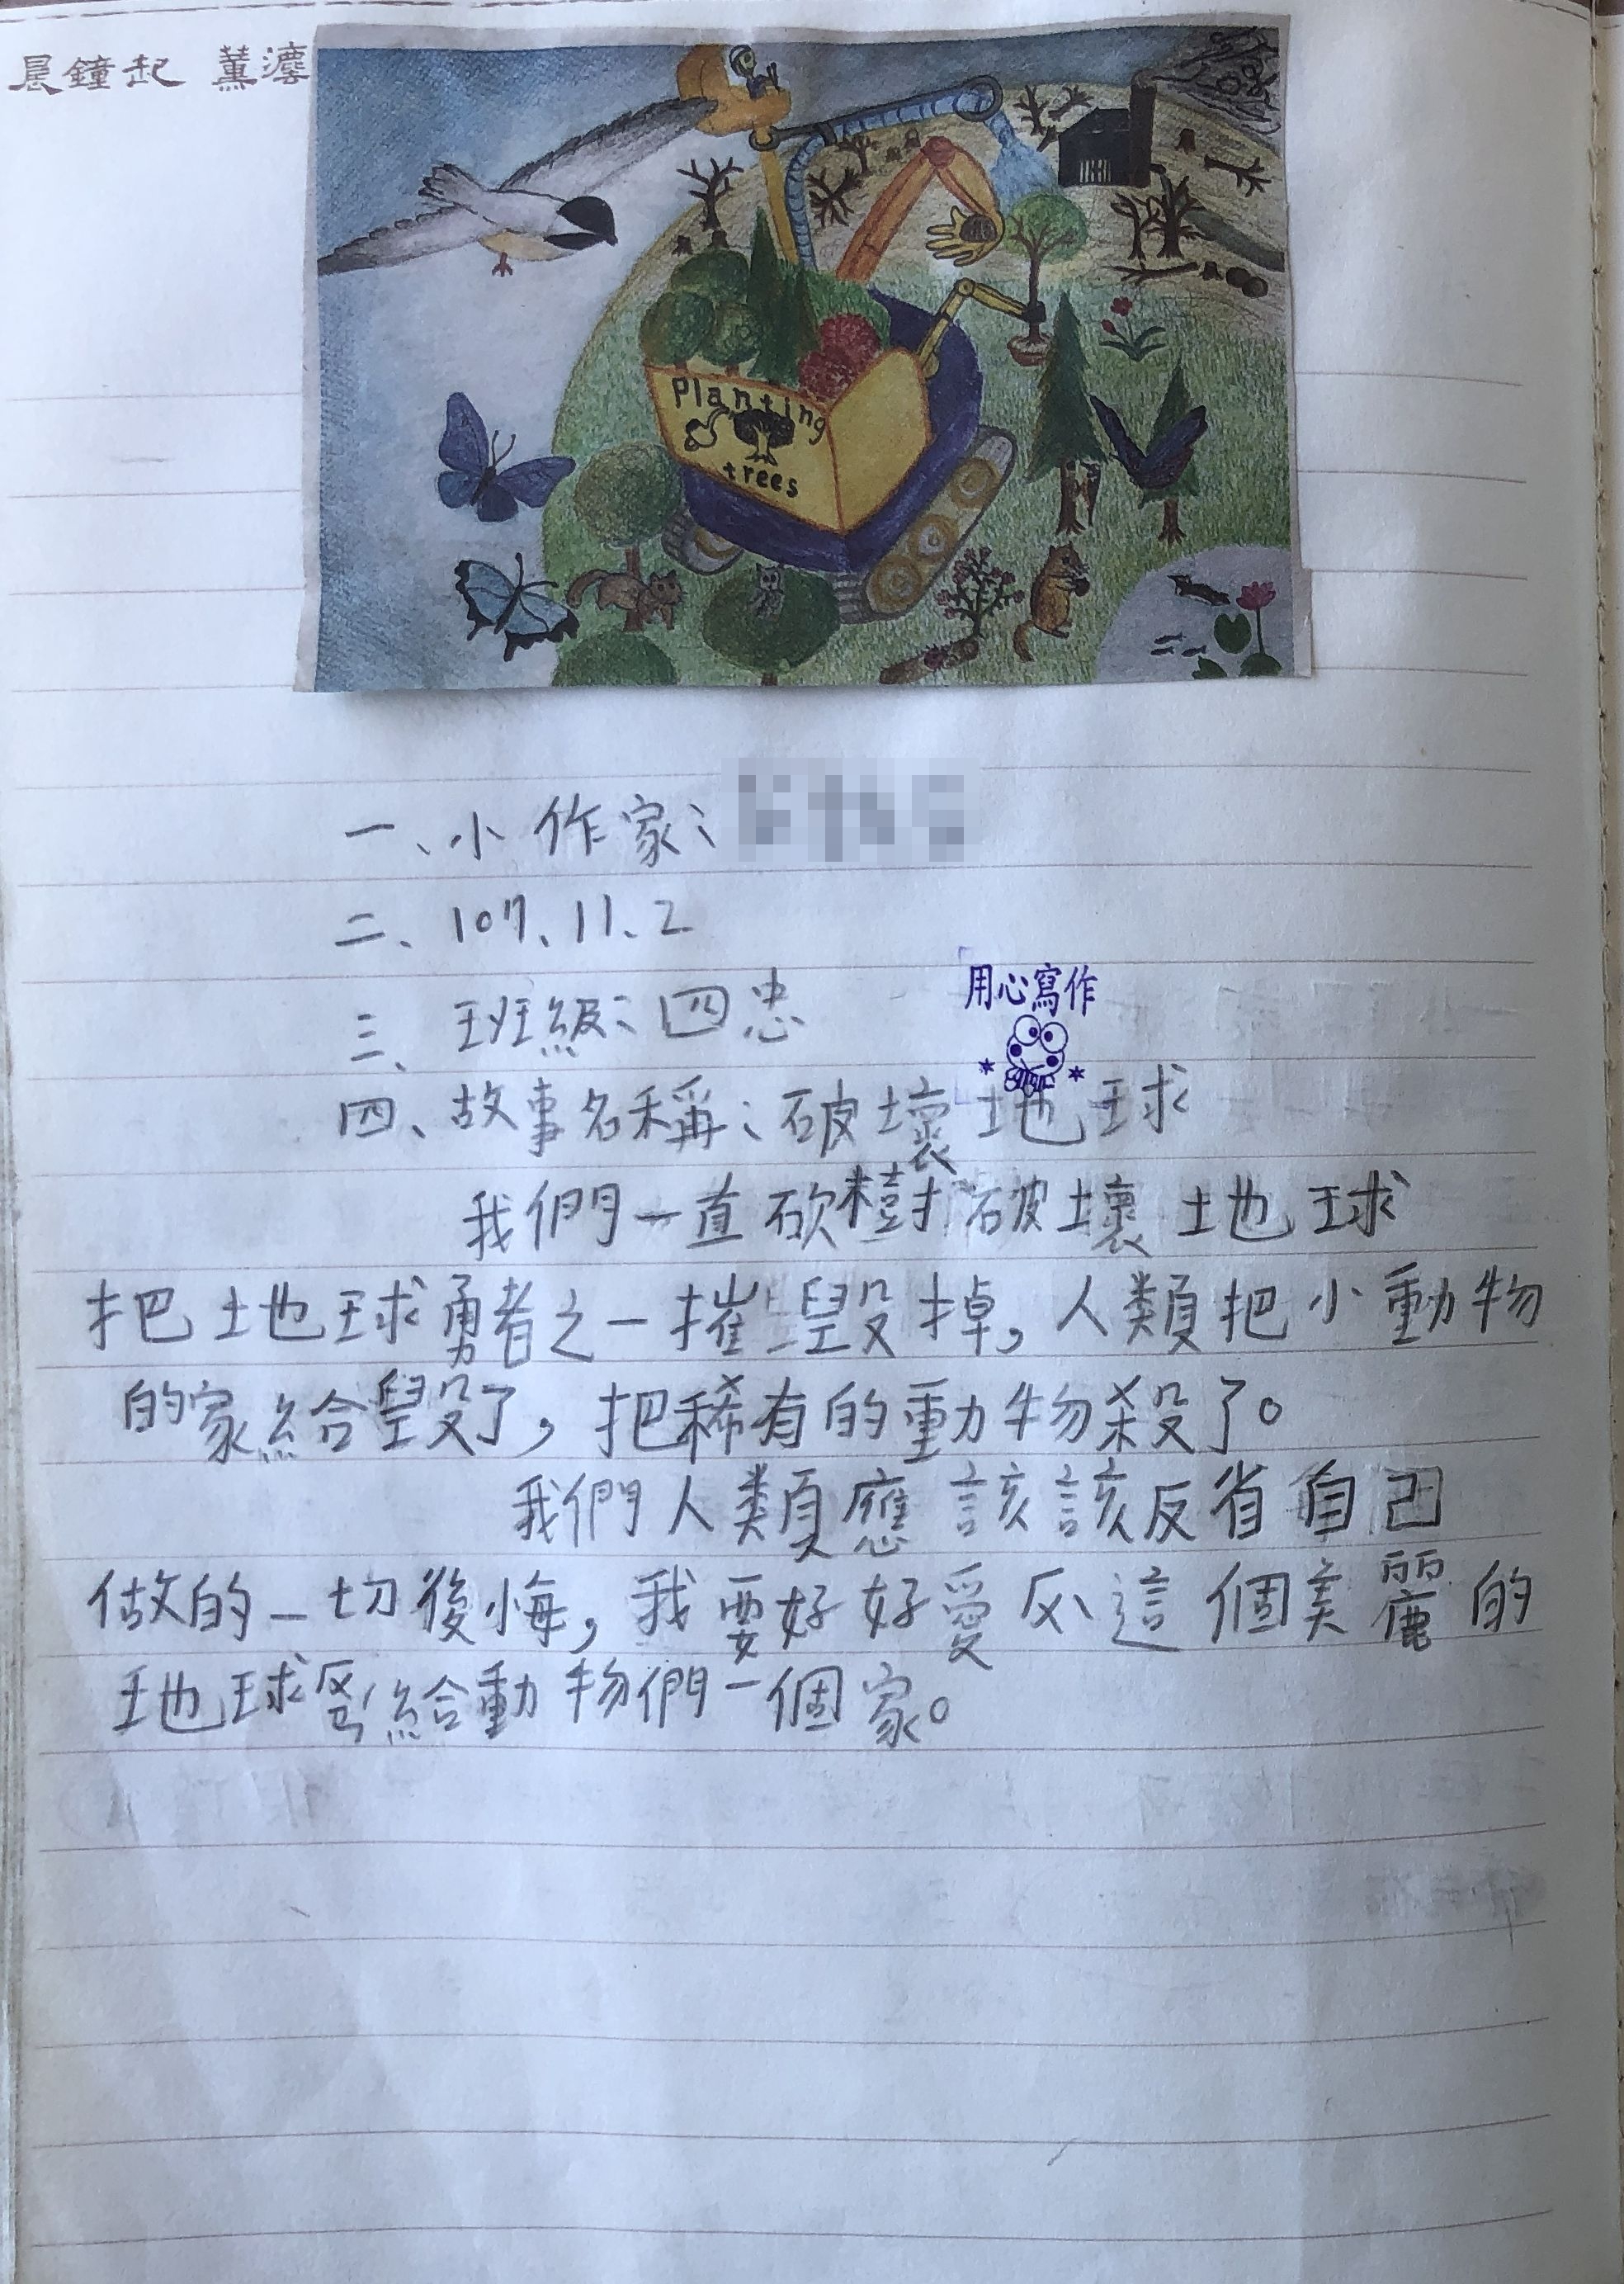 晨鐘起 薰
Planting
trees
一、小作家:
二、107、11、2
三、班級:四忠
用心寫作
四、故事名稱:破壞地球
我們一直砍樹破壞地球
把地球勇者之一摧毀掉,人類把小動物
的家給毀了,把稀有的動物殺了。
我們人類應該該反省自己
做的一切後悔,我要好好愛 這個美麗的
地球 給動物們一個家。